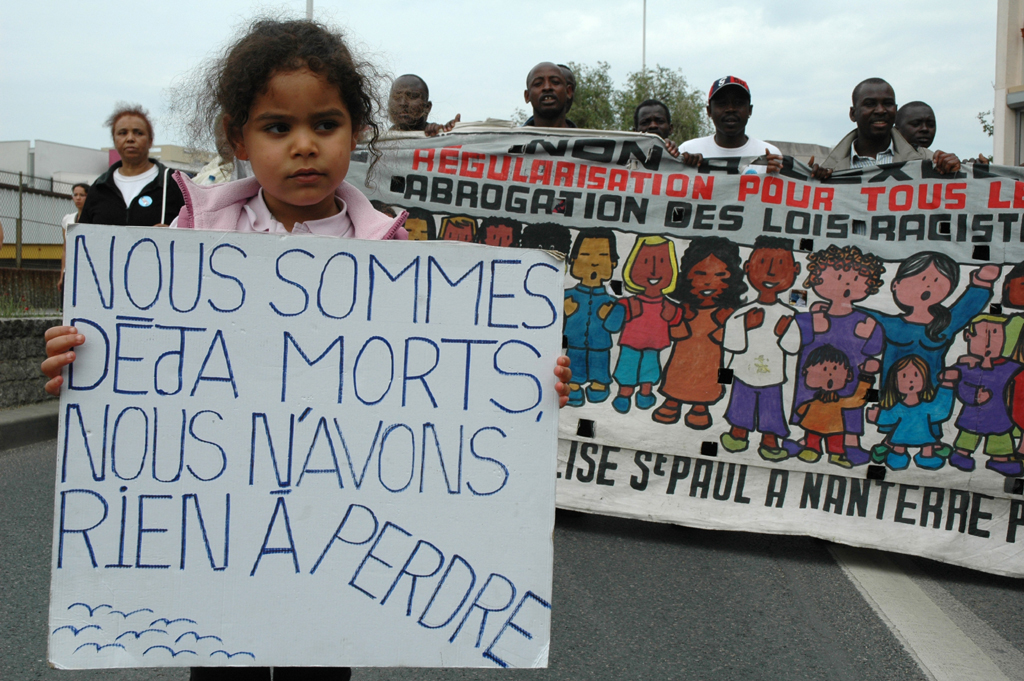 NOUS SOMMES
DĒJA MORTS,
NOUS N'AVONS
RIEN Ā PERDRE
NON A
RÉGULARISATION POUR TOUS LE
ABROGATION DES LOIS RACIST
LISE ST PAUL A NANTERRE P